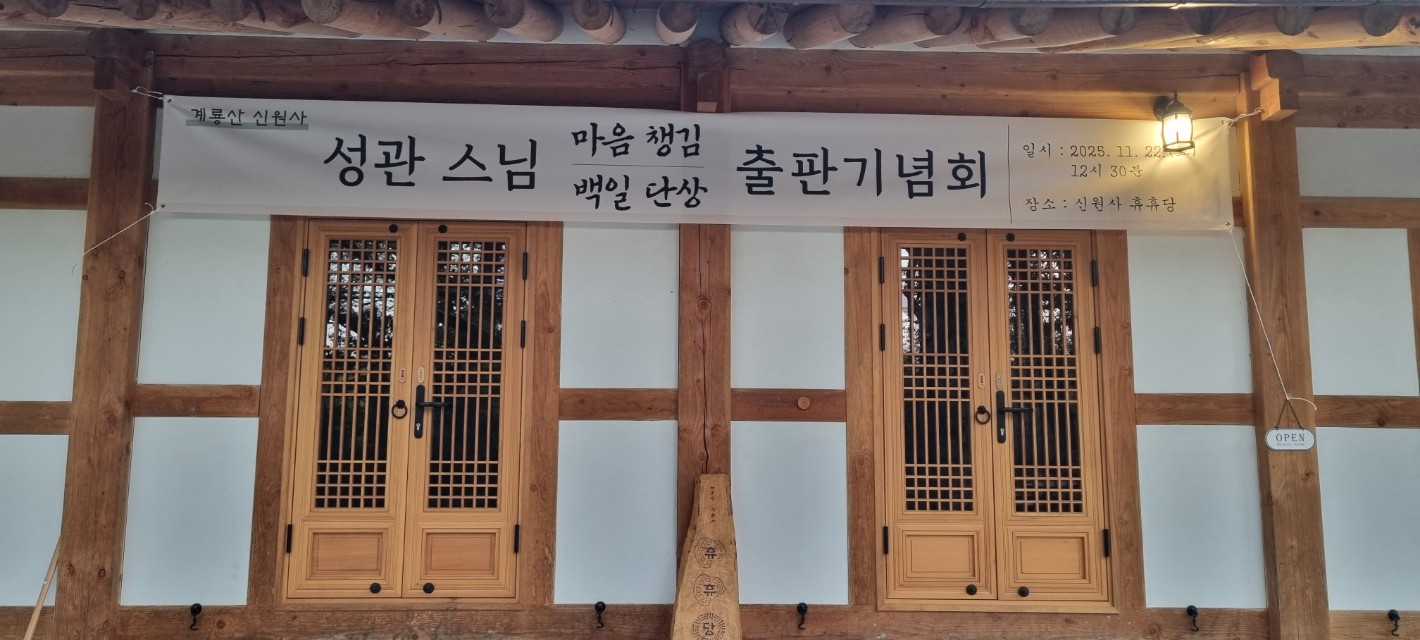 계룡산 신원사
성관 스님
마음 챙김
백일 단상
출판기념회
일시 : 2025. 11. 22.
12시 30분
장소 : 신원사 휴휴당
OPEN
휴
휴
당